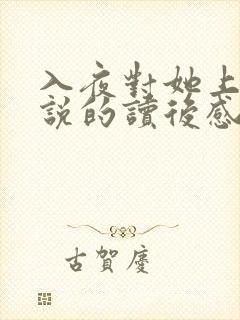 入夜對她上
說的讀後感
古賀慶